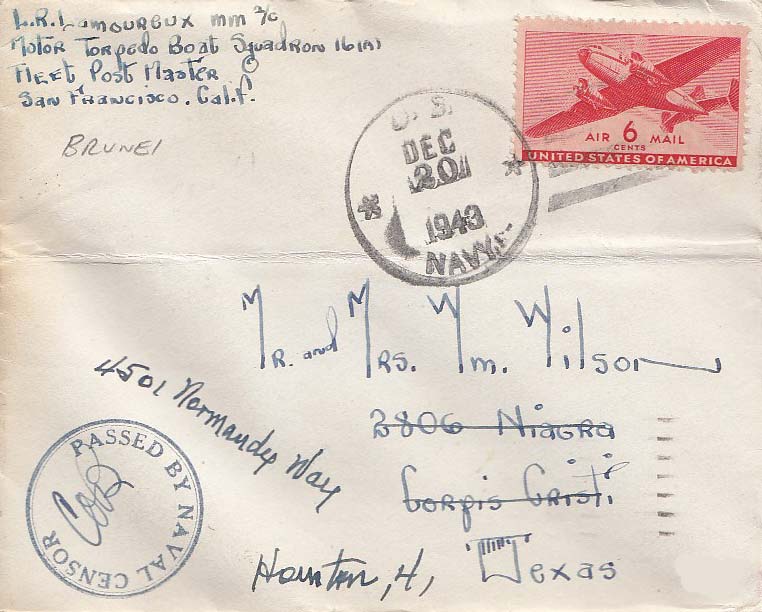 L.R. Lamoureux MM 2/c
Motor Torpedo Boat Squadron 16(A)
Fleet Post Master
San Francisco. Calif.
BRUNEI
AIR 6 MAIL
CENTS
UNITED STATES OF AMERICA
U.S.
DEC
20
1943
NAVY
Mr. and Mrs. Wm. Wilson
4501 Normandy Way
2806 Niagra
Corpis Cristi
Houston, 4, Texas
PASSED BY NAVAL CENSOR